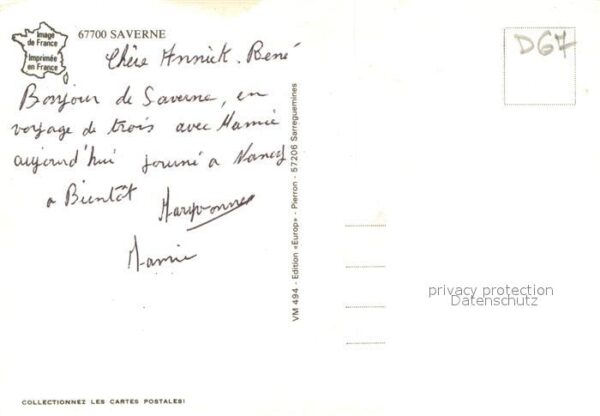 Image
de France
Imprimée
en France
67700 SAVERNE
Chère Annick. René
Bonjour de Saverne, en
voyage de trois avec Mamie
aujourd'hui journé a Nancy
a Bientôt
Maryvonne
Mamie
VM 494 - Edition «Europ» - Pierron - 57206 Sarreguemines
D67
privacy protection
Datenschutz
COLLECTIONNEZ LES CARTES POSTALES!